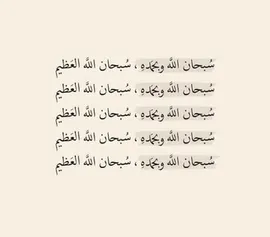 سُبحان اللَّه وبِحَمدِهِ ، سُبحان اللَّه العَظيم
سُبحان اللَّه وبِحَمدِهِ ، سُبحان اللَّه العَظيم
سُبحان اللَّه وبِحَمدِهِ ، سُبحان اللَّه العَظيم
سُبحان اللَّه وبِحَمدِهِ ، سُبحان اللَّه العَظيم
سُبحان اللَّه وبِحَمدِهِ ، سُبحان اللَّه العَظيم